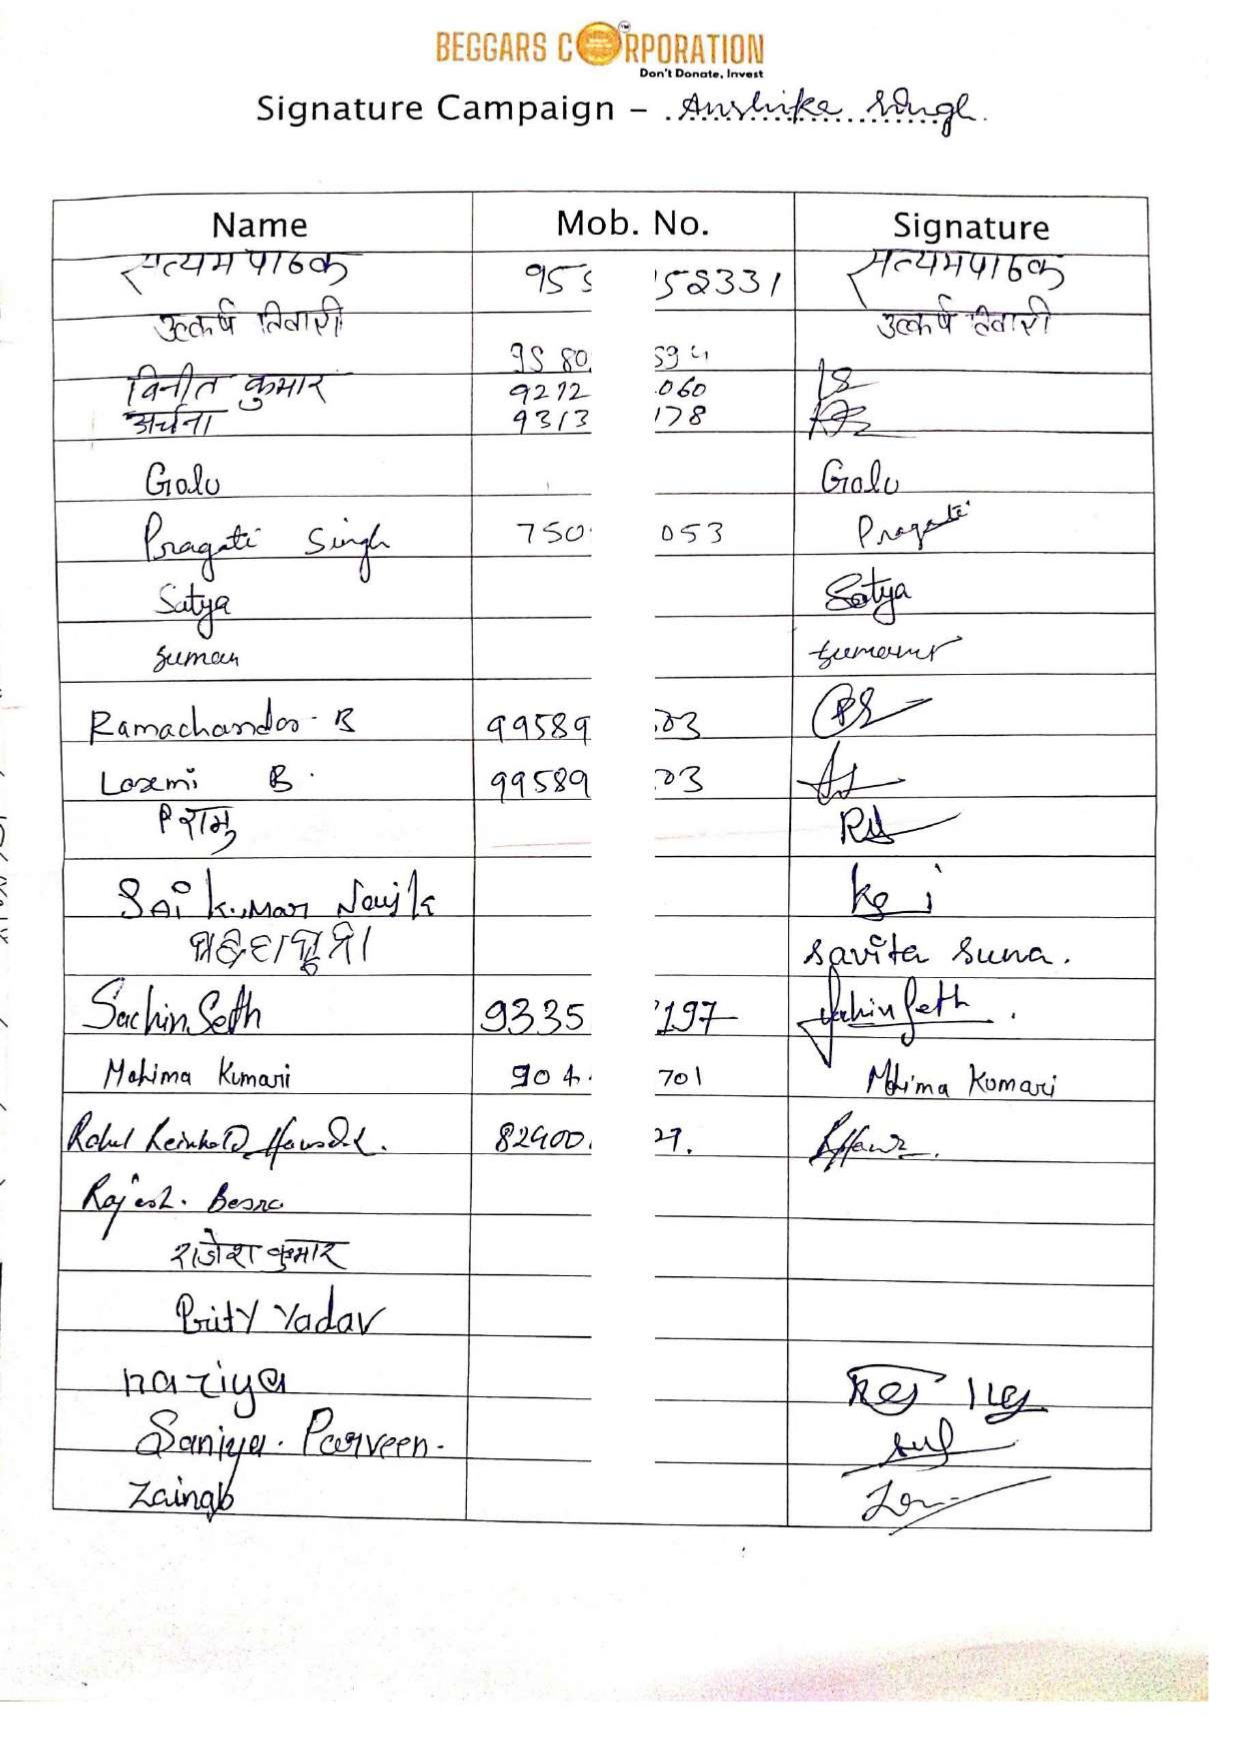 BEGGARS CORPORATION
Don't Donate, Invest
Signature Campaign - Anshika Singh.
Name Mob. No. Signature
सत्यम पाठक 955 58331 सत्यम पाठक
उत्कर्ष तिवारी उत्कर्ष तिवारी
9580 594
विनीत कुमार 9212 060
अर्चना 9313 178
Golu Golu
Pragati Singh 750 053 Pragati
Satya Satya
Suman Suman
Ramachandra B 99589 03
Laxmi B. 99589 03
P रामु
SAi kumar Nayik
Savita Suna.
Sachin Seth 9335 197 Sachin Seth.
Mahima Kumari 904 701 Mahima Kumari
82900 27.
Rajesh. Besra
राजेश कुमार
Prity Yadav
naziya
Saniya. Parveen.
Zainab